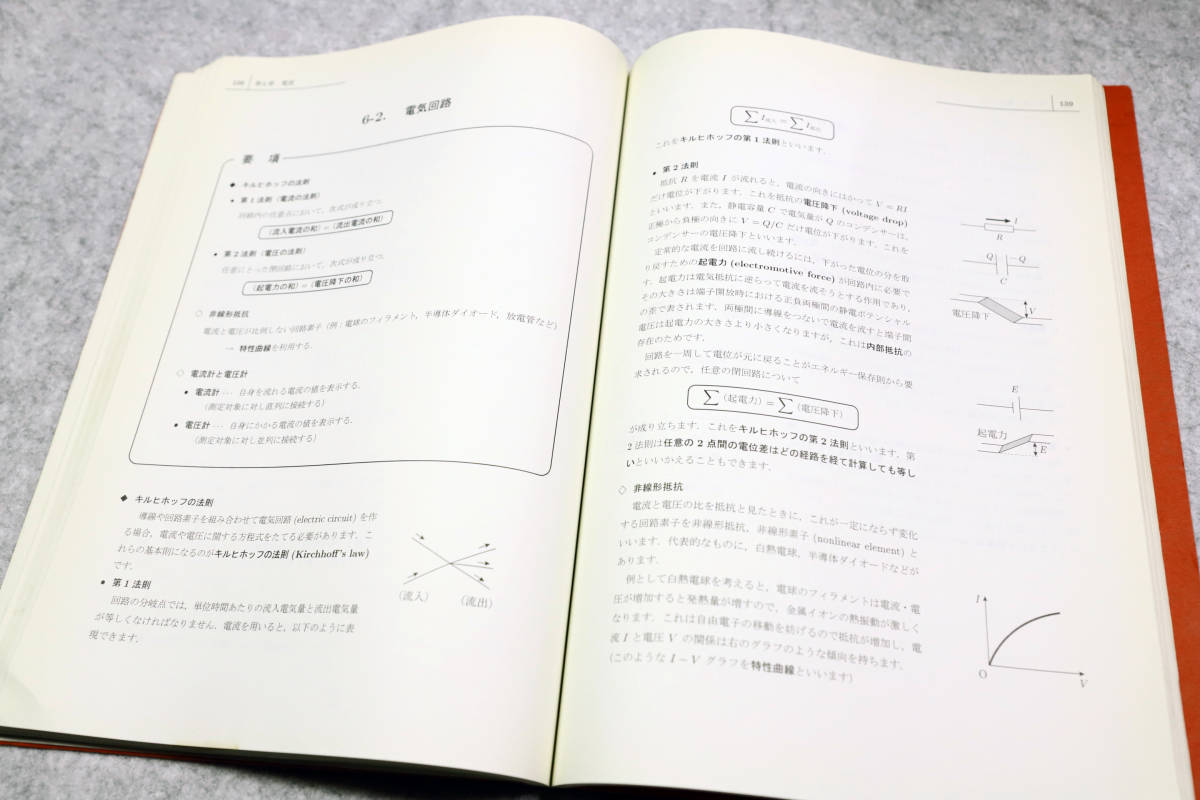 138 第6章 電流
6-2. 電気回路
要 項
◆ キルヒホッフの法則
• 第1法則（電流の法則）
回路内の任意点において，次式が成り立つ．
（流入電流の和）=（流出電流の和）
• 第2法則（電圧の法則）
任意にとった閉回路において，次式が成り立つ．
（起電力の和）=（電圧降下の和）
◇ 非線形抵抗
電流と電圧が比例しない回路素子（例：電球のフィラメント，半導体ダイオード，放電管など）
→ 特性曲線を利用する．
◇ 電流計と電圧計
• 電流計 … 自身を流れる電流の値を表示する．
（測定対象に対し直列に接続する）
• 電圧計 … 自身にかかる電流の値を表示する．
（測定対象に対し並列に接続する）
◆ キルヒホッフの法則
導線や回路素子を組み合わせて電気回路 (electric circuit) を作
る場合，電流や電圧に関する方程式をたてる必要があります．こ
れらの基本則になるのがキルヒホッフの法則 (Kirchhoff's law)
です．
• 第1法則
回路の分岐点では，単位時間あたりの流入電気量と流出電気量
が等しくなければなりません．電流を用いると，以下のように表
現できます．
（流入） （流出）
139
∑ I流入 = ∑ I流出
これをキルヒホッフの第1法則といいます．
• 第2法則
抵抗 R を電流 I が流れると，電流の向きにはかって V = RI
だけ電位が下がります．これを抵抗の電圧降下 (voltage drop)
といいます．また，静電容量 C で電気量が Q のコンデンサーは，
正極から負極の向きに V = Q/C だけ電位が下がります．これを
コンデンサーの電圧降下といいます．
定常的な電流を回路に流し続けるには，下がった電位の分を取
り戻すための起電力 (electromotive force) が回路内に必要で
す．起電力は電気抵抗に逆らって電流を流そうとする作用であり，
その大きさは端子開放時における正負両極間の静電ポテンシャル
の差で表されます．両極間に導線をつないで電流を流すと端子間
電圧は起電力の大きさより小さくなりますが，これは内部抵抗の
存在のためです．
回路を一周して電位が元に戻ることがエネルギー保存則から要
求されるので，任意の閉回路について
∑（起電力）= ∑（電圧降下）
が成り立ちます．これをキルヒホッフの第2法則といいます．第
2法則は任意の2点間の電位差はどの経路を経て計算しても等し
いといいかえることもできます．
◇ 非線形抵抗
電流と電圧の比を抵抗と見たときに，これが一定にならず変化
する回路素子を非線形抵抗，非線形素子 (nonlinear element) と
いいます．代表的なものに，白熱電球，半導体ダイオードなどが
あります．
例として白熱電球を考えると，電球のフィラメントは電流・電
圧が増加すると発熱量が増すので，金属イオンの熱振動が激しく
なります．これは自由電子の移動を妨げるので抵抗が増加し，電
流 I と電圧 V の関係は右のグラフのような傾向を持ちます．
(このような I − V グラフを特性曲線といいます)
I
R
Q −Q
C
電圧降下 V
E
起電力 E
I
O V